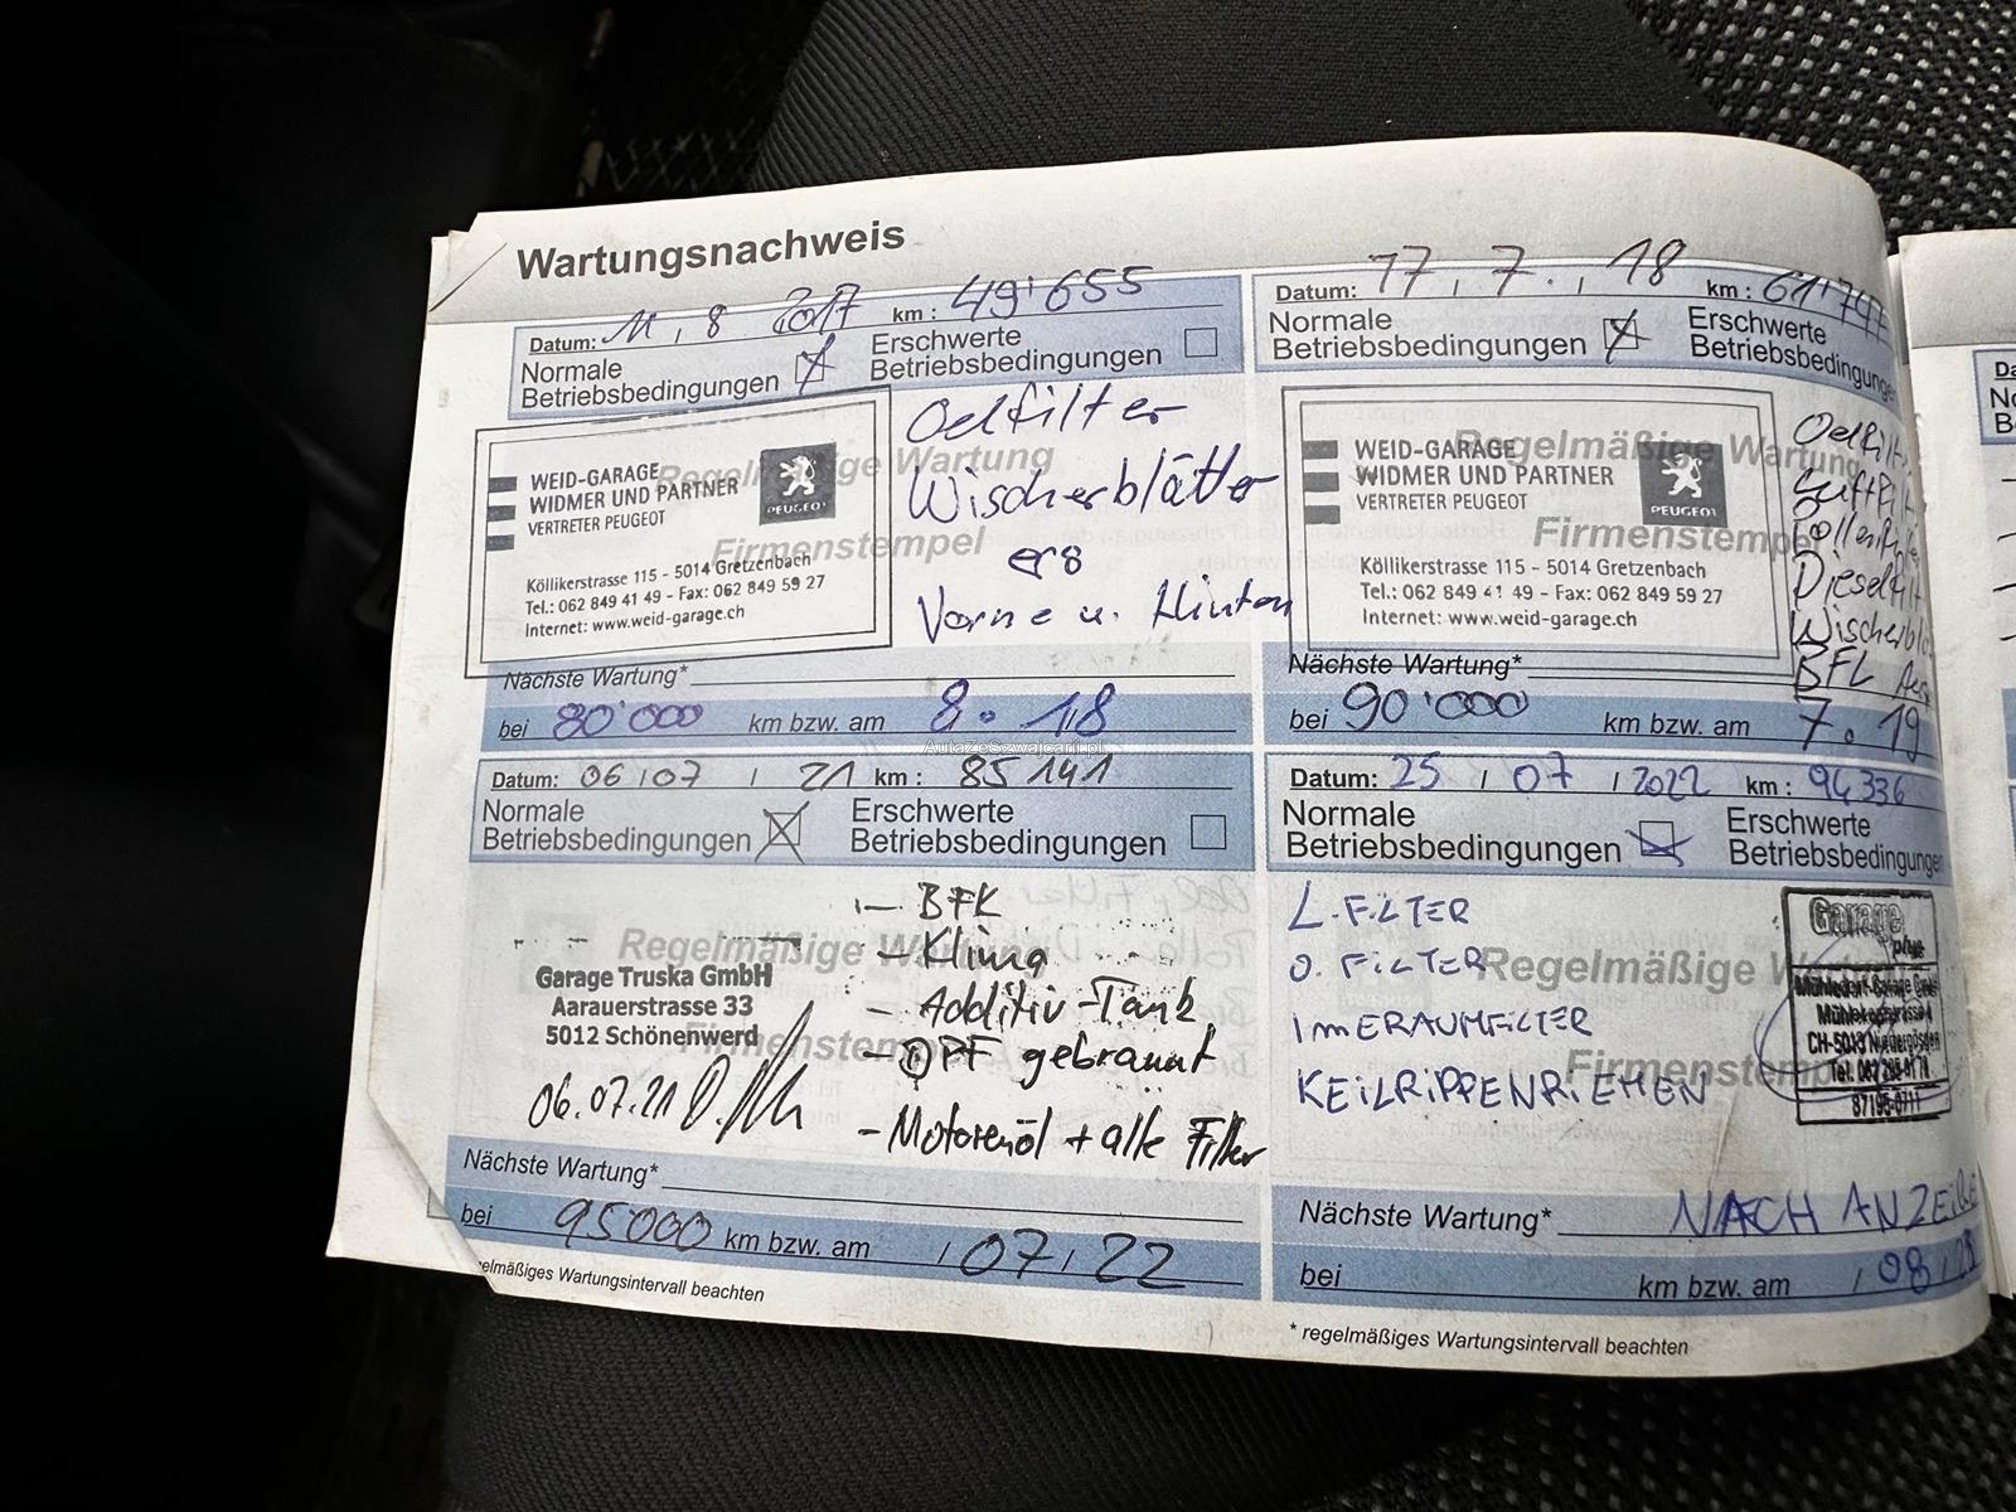 Wartungsnachweis
Datum: 11, 8 2017 km: 49'655
Normale Betriebsbedingungen
Erschwerte Betriebsbedingungen
Regelmäßige Wartung
Firmenstempel
WEID-GARAGE
WIDMER UND PARTNER
VERTRETER PEUGEOT
PEUGEOT
Köllikerstrasse 115 - 5014 Gretzenbach
Tel.: 062 849 41 49 - Fax: 062 849 59 27
Internet: www.weid-garage.ch
Oelfilter
Wischerblätter
ers
Vorne u. Hinten
Nächste Wartung*
bei 80'000 km bzw. am 8. 18
Datum: 17, 7., 18 km: 61'74
Normale Betriebsbedingungen
Erschwerte Betriebsbedingungen
Regelmäßige Wartung
Firmenstempel
WEID-GARAGE
WIDMER UND PARTNER
VERTRETER PEUGEOT
PEUGEOT
Köllikerstrasse 115 - 5014 Gretzenbach
Tel.: 062 849 41 49 - Fax: 062 849 59 27
Internet: www.weid-garage.ch
Oelfilt
Luftfilt
Pollenfilter
Dieselfilt
Wischerbl
BFL
Nächste Wartung*
bei 90'000 km bzw. am 7. 19
AutaZeSzwajcarii.pl
Datum: 06/07/21 km: 85141
Normale Betriebsbedingungen
Erschwerte Betriebsbedingungen
Regelmäßige Wartung
Firmenstempel
Garage Truska GmbH
Aarauerstrasse 33
5012 Schönenwerd
06.07.21
- BFK
- Klima
- Additiv-Tank
- DPF gebrannt
- Motorenöl + alle Filter
Nächste Wartung*
bei 95000 km bzw. am /07/22
elmäßiges Wartungsintervall beachten
Datum: 25/07/2022 km: 94336
Normale Betriebsbedingungen
Erschwerte Betriebsbedingungen
Regelmäßige W
Firmenstemp
L. FILTER
O. FILTER
KEILRIPPENRIEHEN
Garage
plus
Nächste Wartung* NACH ANZEI
bei km bzw. am /08/
* regelmäßiges Wartungsintervall beachten